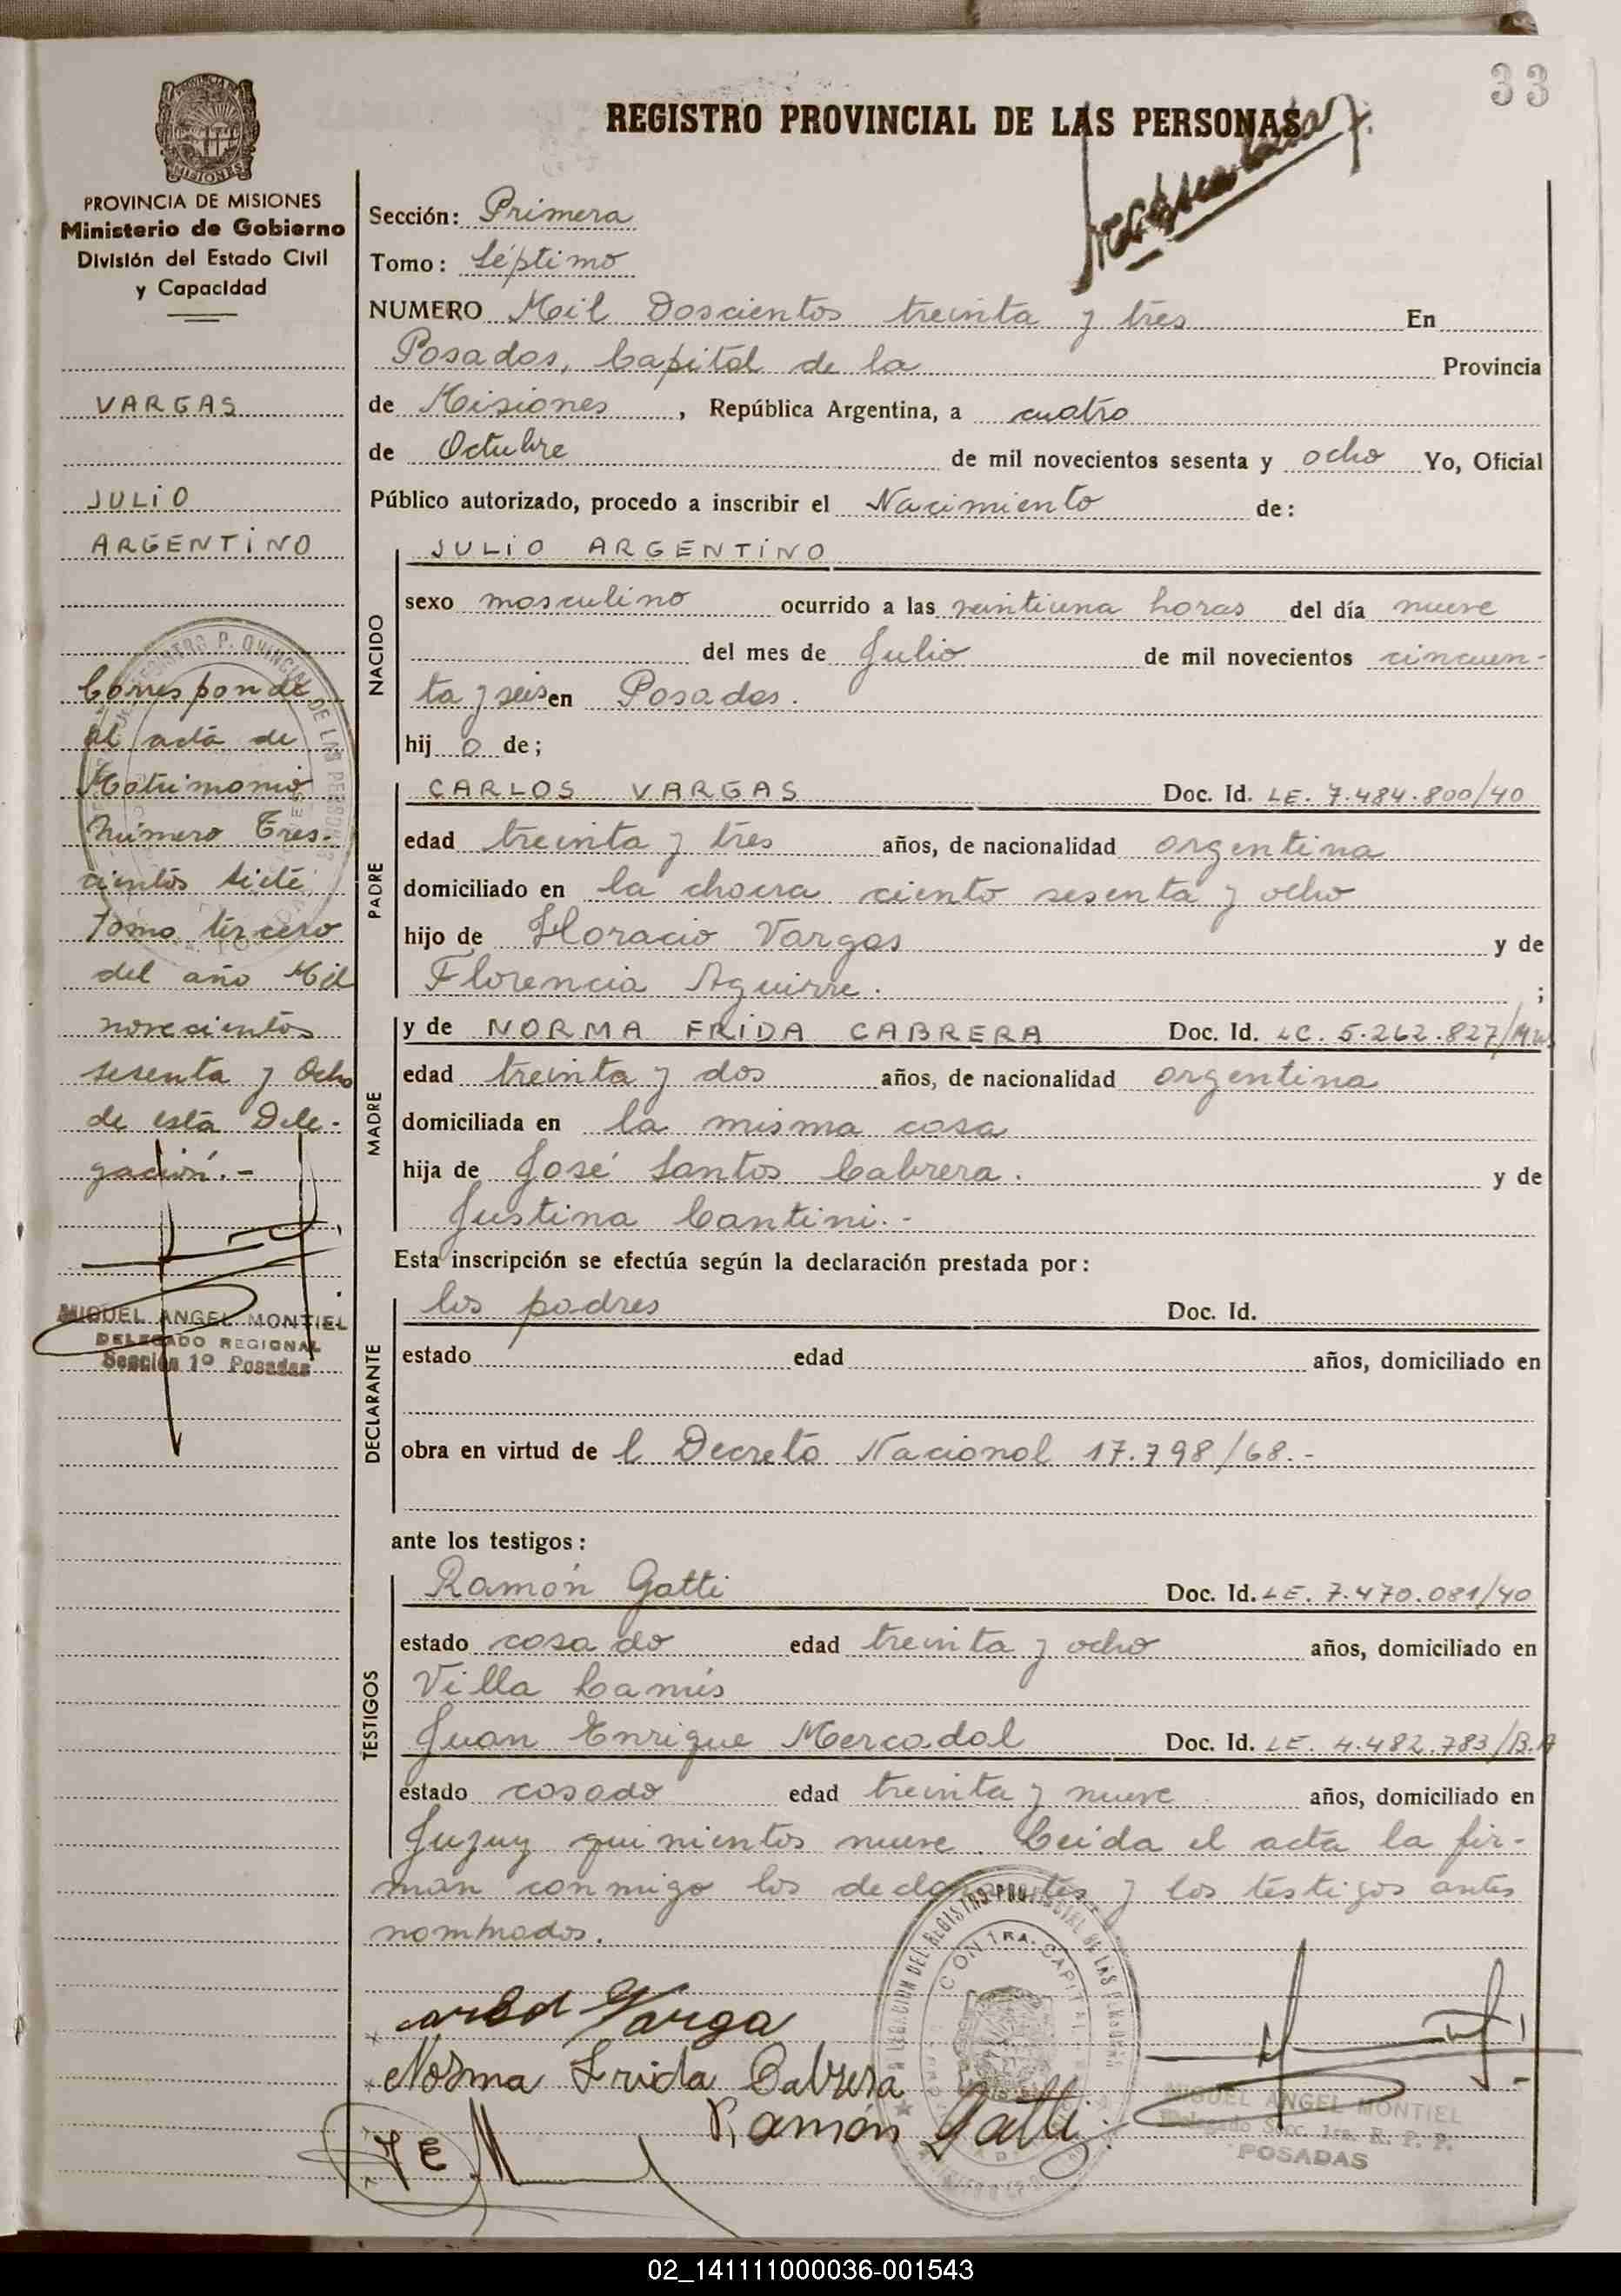 33
REGISTRO PROVINCIAL DE LAS PERSONAS
PROVINCIA DE MISIONES
Ministerio de Gobierno
División del Estado Civil
y Capacidad
VARGAS
JULIO
ARGENTINO
Corresponde
al acta de
Matrimonio
número Tres-
cientos siete
Tomo tercero
del año Mil
novecientos
sesenta y Ocho
de esta Dele-
gación.-
MIGUEL ANGEL MONTIEL
DELEGADO REGIONAL
Sección 1º Posadas
Sección: Primera
Tomo: Séptimo
NUMERO Mil Doscientos treinta y tres En
Posadas, Capital de la Provincia
de Misiones, República Argentina, a cuatro
de Octubre de mil novecientos sesenta y ocho Yo, Oficial
Público autorizado, procedo a inscribir el Nacimiento de:
NACIDO
JULIO ARGENTINO
sexo masculino ocurrido a las veintiuna horas del día nueve
del mes de Julio de mil novecientos cincuen-
ta y seis en Posadas.
hij o de;
PADRE
CARLOS VARGAS Doc. Id. LE. 7.484.800/40
edad treinta y tres años, de nacionalidad argentina
domiciliado en la chacra ciento sesenta y ocho
hijo de Horacio Vargas y de
Florencia Aguirre. ;
MADRE
y de NORMA FRIDA CABRERA Doc. Id. LC. 5.262.827/
edad treinta y dos años, de nacionalidad argentina
domiciliada en la misma casa
hija de José Santos Cabrera. y de
Justina Cantini.-
Esta inscripción se efectúa según la declaración prestada por:
DECLARANTE
los padres Doc. Id.
estado edad años, domiciliado en
obra en virtud de l Decreto Nacional 17.798/68.-
ante los testigos:
TESTIGOS
Ramón Gatti Doc. Id. LE. 7.470.081/40
estado casado edad treinta y ocho años, domiciliado en
Villa Lanús
Juan Enrique Mercadal Doc. Id. LE. 4.482.783/B.A
estado casado edad treinta y nueve años, domiciliado en
Jujuy quinientos nueve. Leída el acta la fir-
man conmigo los declarantes y los testigos antes
nombrados.
Vargas
Norma Frida Cabrera
Ramón Gatti
MIGUEL ANGEL MONTIEL
Delegado Secc. 1ra. R. P. P.
POSADAS
02_141111000036-001543